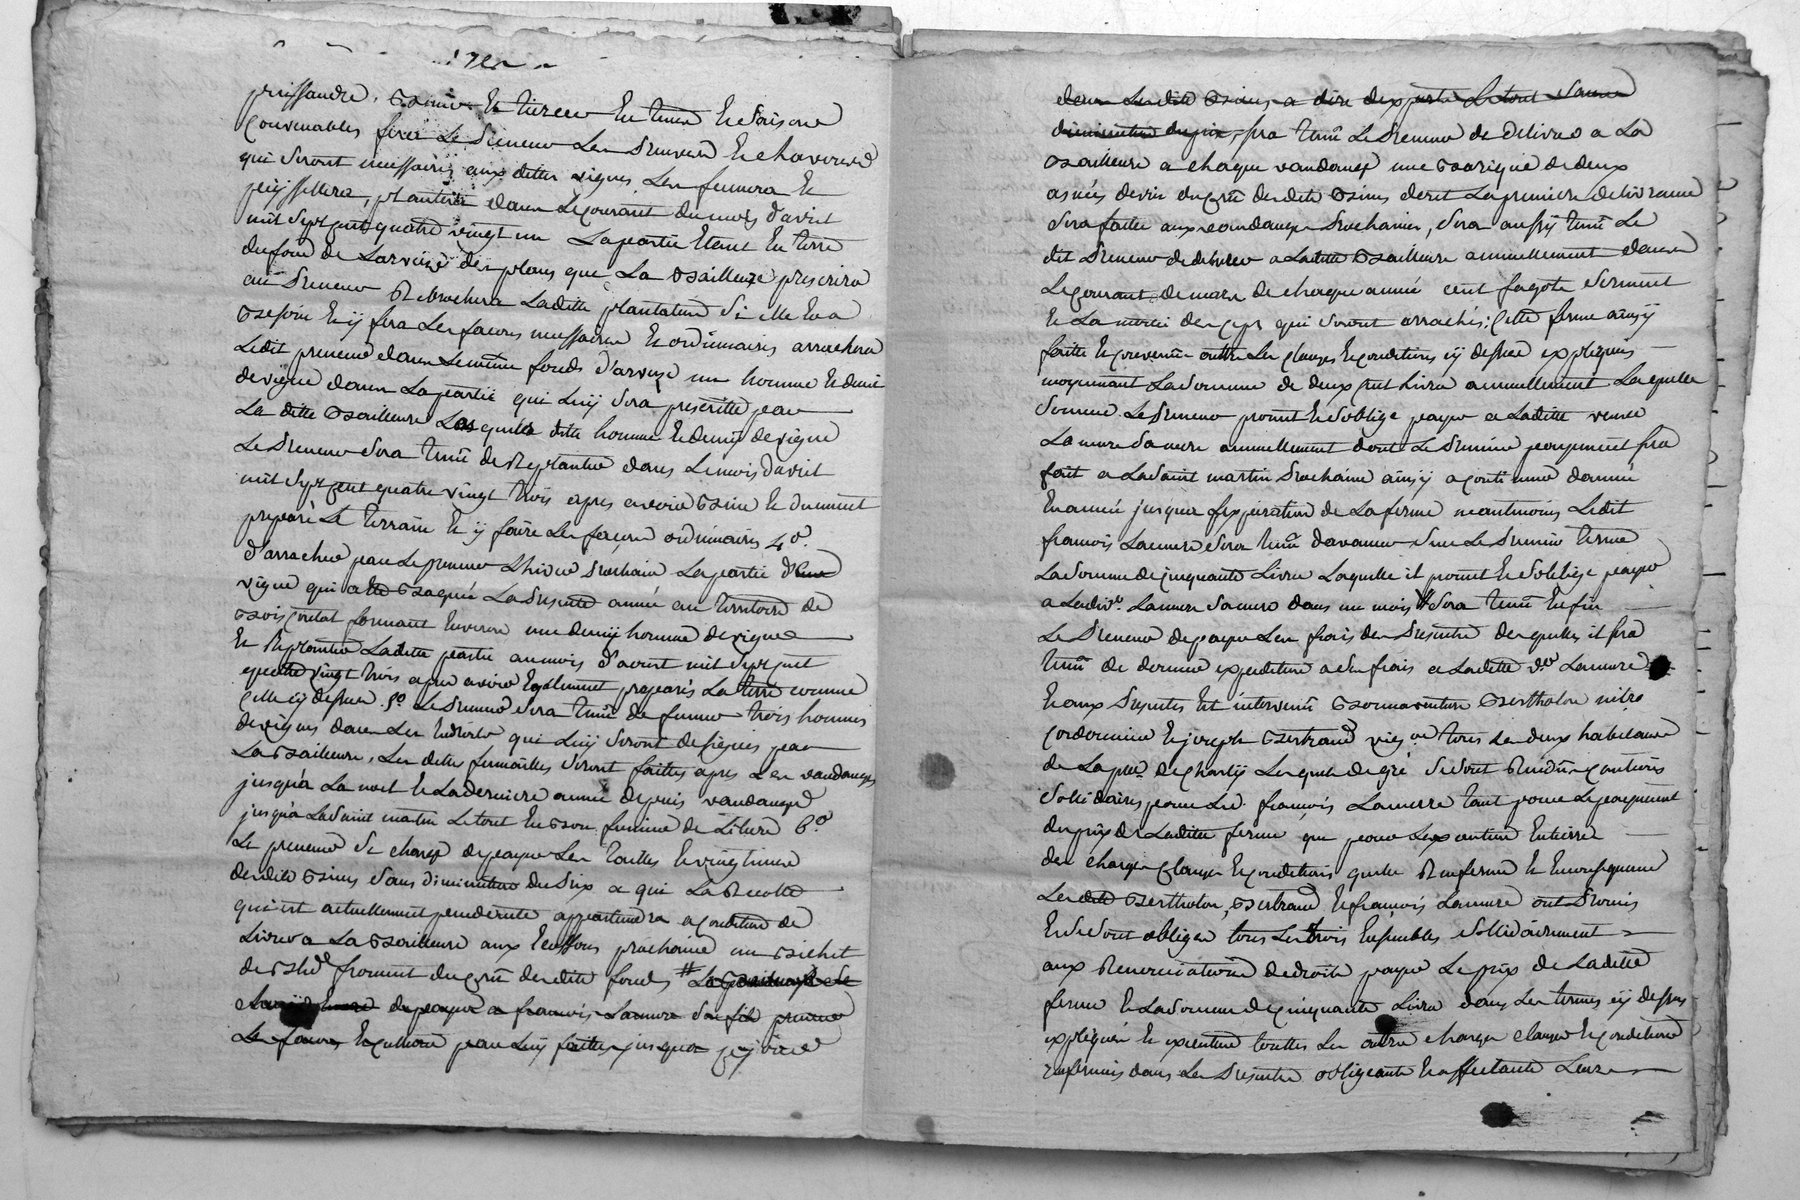 puissandre, biner et tiercer en tems et saisons
convenables fera le preneur les preuvins et chavons
qui seront necessaires aux dittes vignes, les fumera et
peissellera, plantera dans le courant du mois d'avril
mil sept cent quatre vingt un la partie etant en terre
du fond de Larvize des plans que la bailleuse prescrira
au preneur rebrochera laditte plantation si elle en a
besoin et y fera les façons necessaires et ordinaires arrachera
ledit preneur dans le même fonds d'arvize un homme et demi
de vigne dans la partie qui luy sera prescritte par
la ditte bailleuse lasquelle ditte homme et demy de vigne
le preneur sera tenu de replanter dans le mois d'avril
mil sept cent quatre vingt trois apres avoir biné et dument
preparé le terrain et y faire les façons ordinaires 4o.
d'arracher par le preneur l'hiver prochain la partie de
vigne qui a été la presente année au territoire de
bois contal formant environ une demy homme de vigne
et replanter laditte partie au mois d'avril mil sept cent
quatre vingt trois apres avoir egalement preparé la terre comme
celle cy dessus 5o le preneur sera tenu de fumer trois hommes
de vignes dans les endroits qui luy seront designés par
la bailleuse, les dittes fumailles seront faittes apres les vandanges
jusqu'a la noel et la derniere année depuis vandanges
jusqu'a la saint martin le tout en bon fumier de litiere 6o.
le preneur se charge de payer les tailles et vingtieme
desdits biens sans diminution du prix a qui la recolte
qui est actuellement pendente appartiendra a condition de
livrer a la bailleuse aux moissons prochaine un bichet
de bled froment du crû desdits fonds #
de payer a francois Lamure son fils preneur
les façons et cultures par luy faittes jusqua ce jour
dans lesdits biens a dire d'experts le tout sans
diminution du prix, sera tenu le preneur de delivrer a la
bailleuse a chaque vandange une barrique de deux
asnées de vin du crû desdits biens dont la premiere delivrance
sera faitte aux vandanges prochaines, sera aussy tenu le
dit preneur de delivrer a laditte bailleuse annuellement dans
le courant de mars de chaque année cent fagots serment
et la moitié des ceps qui seront arrachés; Cette ferme ainsy
faitte et convenue outtre les clauses et conditions cy dessus expliquées
moyennant la somme de deux cent livres annuellement laquelle
somme le preneur promet et s'oblige payer a laditte veuve
Lamure sa mere annuellement dont le premier payement sera
fait a la saint martin prochaine ainsy a continuer d'année
en année jusqua l'expiration de la ferme neantmoins ledit
francois Lamure sera tenu d'avancer sur le premier terme
la somme de cinquante livres laquelle il promet et s'oblige payer
a ladite Ve. Lamure sa mere dans un mois # sera tenu enfin
le preneur de payer les frais des presentes desquelles il sera
tenu de donner expedition a ses frais a laditte Ve Lamure
et aux presentes est intervenu bonnaventure Bertholon mtre
cordonnier et joseph Bertrand vigon tous les deux habitans
de la psse. de charly lesquels de gré se sont rendus cautions
solidaires pour led. francois Lamurre tant pour le payement
du prix de laditte ferme que pour l'execution entiere
des charges clauses et conditions quelle renferme et en consequence
lesdits Bertholon, Bertrand et francois Lamure ont promis
et se sont obliges tous les trois ensembles solidairement
aux renonciations de droits payer le prix de laditte
ferme et la somme de cinquante livres dans les termes cy dessus
expliqués et executer touttes les autres charges clauses et conditions
renfermées dans les presentes obligeants et affectants leurs